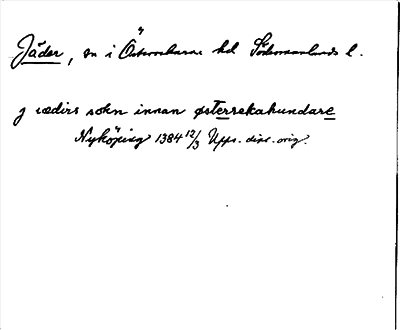 Jäder, sn i Österrekarne hd Södermanlands l.
J ædirs sokn innan østersekahundare
Nyköping 1384 12/3 Upps. dipl. orig.